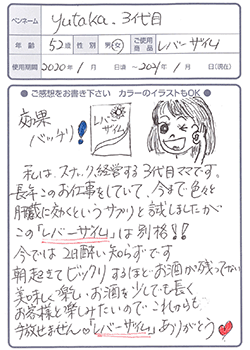 ペンネーム yutaka.3代目
年齢 52歳 性別 男・女 ご使用商品 レバーザイム
使用期間 2020年 1月 日頃 ~ 2021年 1月 日(現在)
● ご感想をお書き下さい カラーのイラストもOK ●
効果
バッチリ!
レバーザイム
私は、スナック経営する3代目ママです。
長年このお仕事をしていて、今まで色々と
肝臓に効くというサプリを試しましたが
この「レバーザイム」は別格!!
今では2日酔い知らずです
朝起きてビックリするほどお酒が残ってない
美味しく楽しいお酒を少しでも長く
お客様と楽しみたいのでこれからも
手放せません♡「レバーザイム」ありがとう♥